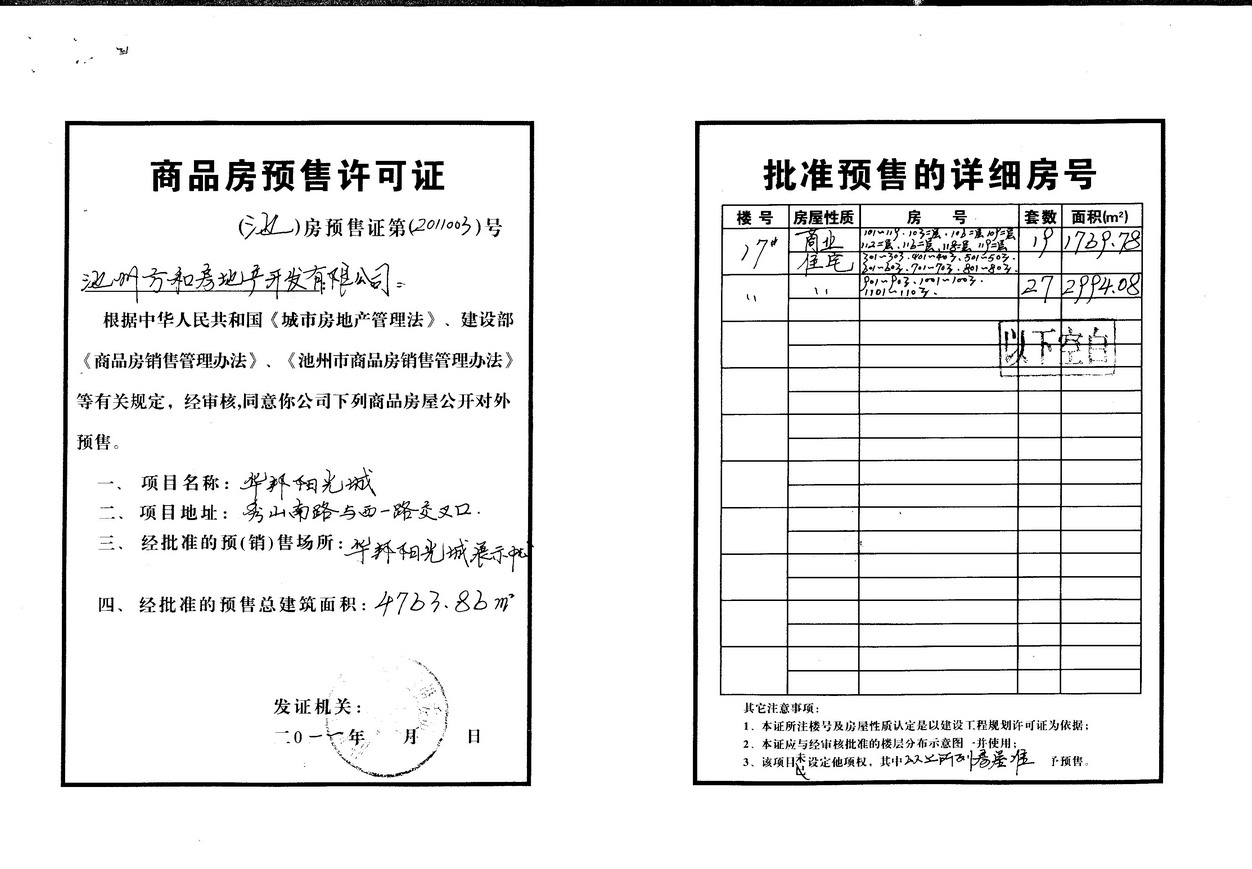 商品房预售许可证
(池)房预售证第(2011003)号
池州方和房地产开发有限公司:
根据中华人民共和国《城市房地产管理法》、建设部
《商品房销售管理办法》、《池州市商品房销售管理办法》
等有关规定，经审核,同意你公司下列商品房屋公开对外
预售。
一、 项目名称: 华邦阳光城
二、 项目地址: 秀山南路与西一路交叉口.
三、 经批准的预(销)售场所: 华邦阳光城展示中心
四、 经批准的预售总建筑面积: 4763.86m²
发证机关:
二0一一年 月 日
批准预售的详细房号
楼号 房屋性质 房 号 套数 面积(m²)
17# 商业 101~119. 103二层. 106二层 109二层
112二层. 116二层. 118二层 119二层 19 1769.78
住宅 301~303. 401~403. 501~503.
601~603. 701~703. 801~803.
〃 〃 901~903. 1001~1003.
1101~1103. 27 2994.08
以下空白
其它注意事项:
1、本证所注楼号及房屋性质认定是以建设工程规划许可证为依据;
2、本证应与经审核批准的楼层分布示意图一并使用;
3、该项目未设定他项权，其中以上所列房屋准 予预售。